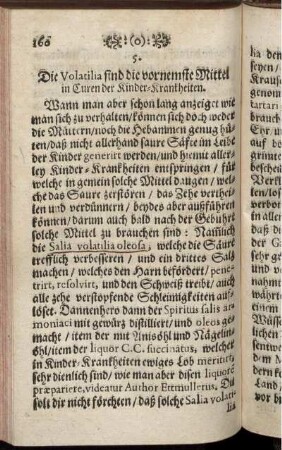 160 (o)
5.
Die Volatilia sind die vornemste Mittel
in Curen der Kinder-Krankheiten.
Wann man aber schon lang anzeiget wie
man sich zu verhalten/können sich doch weder
die Müttern/noch die Hebammen genug hü-
ten/daß nicht allerhand saure Säfte im Leibe
der Kinder generirt werden/und hiemit aller-
ley Kinder-Krankheiten entspringen / für
welche in gemein solche Mittel daugen / wel-
che das Saure zerstören / das Zehe verthei-
len und verdünnern / beydes aber außführen
können/darum auch bald nach der Gebuhrt
solche Mittel zu brauchen sind: Nam̃lich
die Salia volatilia oleosa, welche die Säure
trefflich verbesseren / und ein drittes Salz
machen/welches den Harn befördert/pene-
trirt, resolvirt, und den Schweiß treibt/auch
alle zehe verstopfende Schleimigkeit auflö-
löset. Dannenhero dann der Spiritus salis ar-
moniaci mit gewürz distilliert/und oleos ge-
macht/item der mit Anisöhl und Nägelin-
öhl/item der liquor C. C. succinatus, welcher
in Kinder-Krankheiten ewiges Lob meritirt/
sehr dienlich sind/wie man aber disen liquorē
præpariere, videatur Author Ettmullerus. Du
solt dir nicht förchten/daß solche Salia volati-
lia